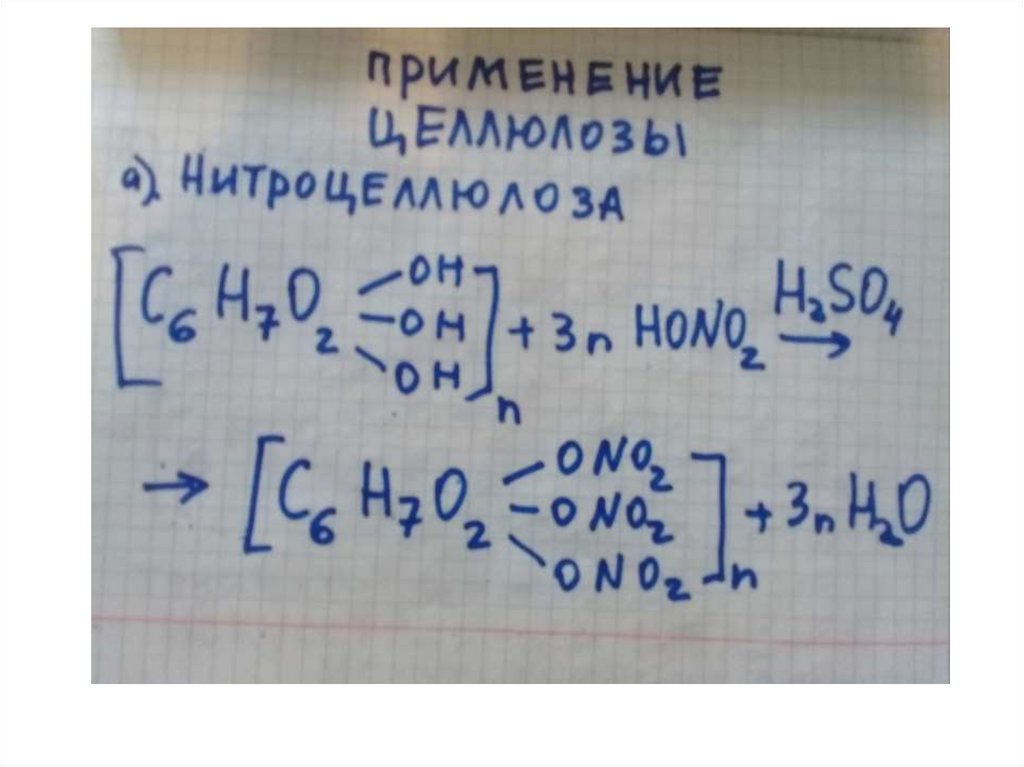 ПРИМЕНЕНИЕ
ЦЕЛЛЮЛОЗЫ
а) НИТРОЦЕЛЛЮЛОЗА
[C₆H₇O₂ –OH –OH –OH]n + 3n HONO₂ H₂SO₄ →
→ [C₆H₇O₂ –ONO₂ –ONO₂ –ONO₂]n + 3n H₂O